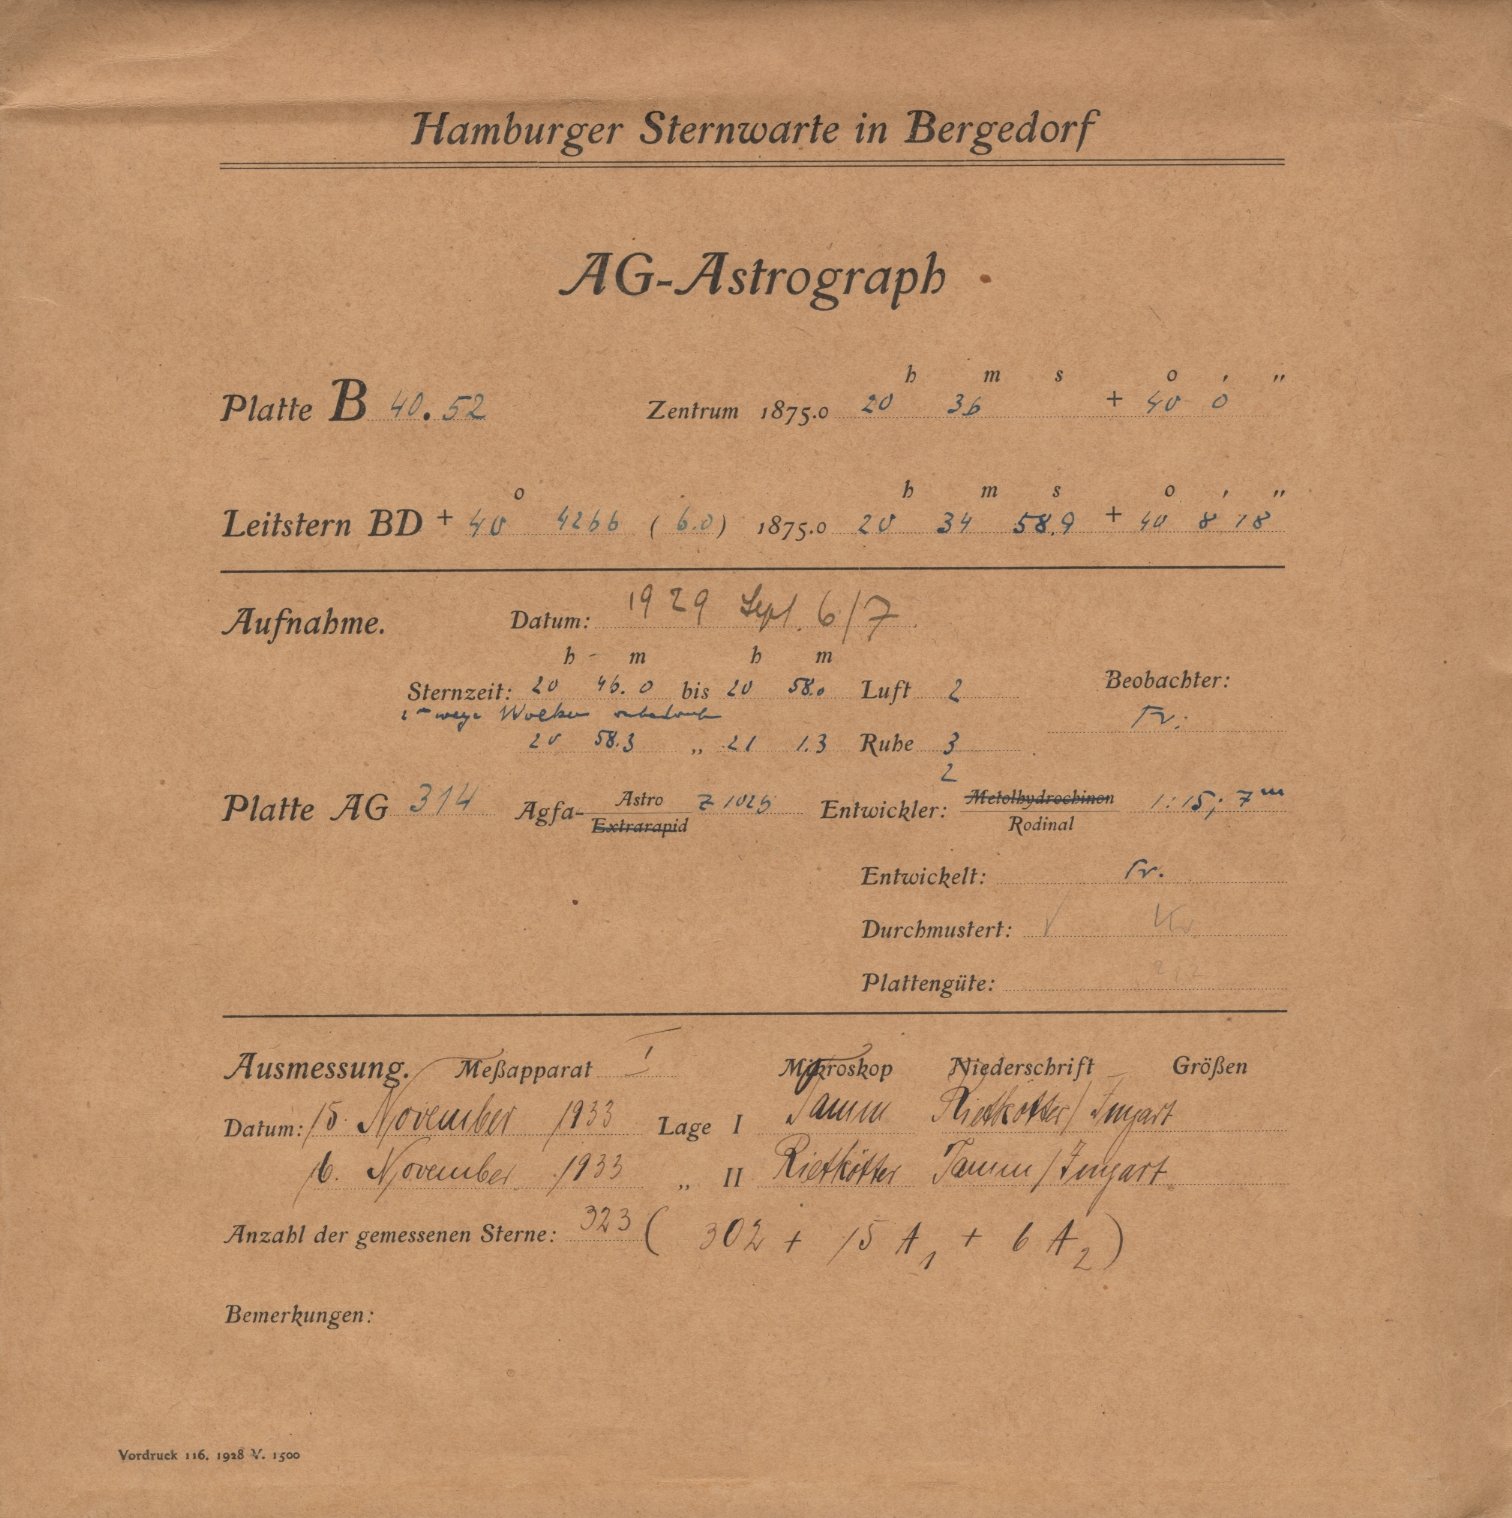 Hamburger Sternwarte in Bergedorf
AG-Astrograph
h m s o ' "
Platte B 40.52 Zentrum 1875.0 20 36 + 40 0
o h m s o ' "
Leitstern BD + 40 4266 (6.0) 1875.0 20 34 58.9 + 40 8 18
Aufnahme. Datum: 1929 Sept. 6/7
h m h m
Sternzeit: 20 46.0 bis 20 58.0 Luft 2 Beobachter:
wege Wolken Fr.
20 58.3 " 21 1.3 Ruhe 3
2
Platte AG 314 Agfa- Astro Z 1025 Entwickler: Metolhydrochinon 1:15; 7m
Extrarapid Rodinal
Entwickelt: Fr.
Durchmustert: √ Kr.
Plattengüte:
Ausmessung. Meßapparat I Mikroskop Niederschrift Größen
Datum: 15. November 1933 Lage I Tamm Rietkötter/Imgart
16. November 1933 " II Rietkötter Tamm/Imgart
Anzahl der gemessenen Sterne: 323 (302 + 15 A1 + 6 A2)
Bemerkungen:
Vordruck 116. 1928 V. 1500